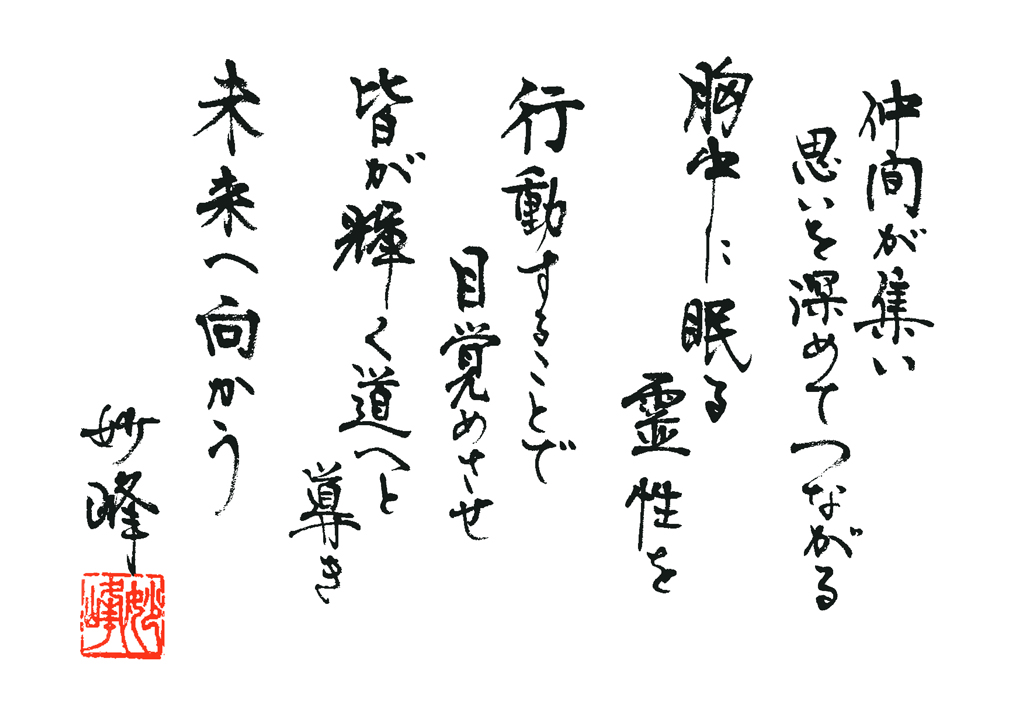 仲間が集い
思いを深めてつながる
胸中に眠る
霊性を
行動することで
目覚めさせ
皆が輝く道へと
導き
未来へ向かう
妙峰
妙峰